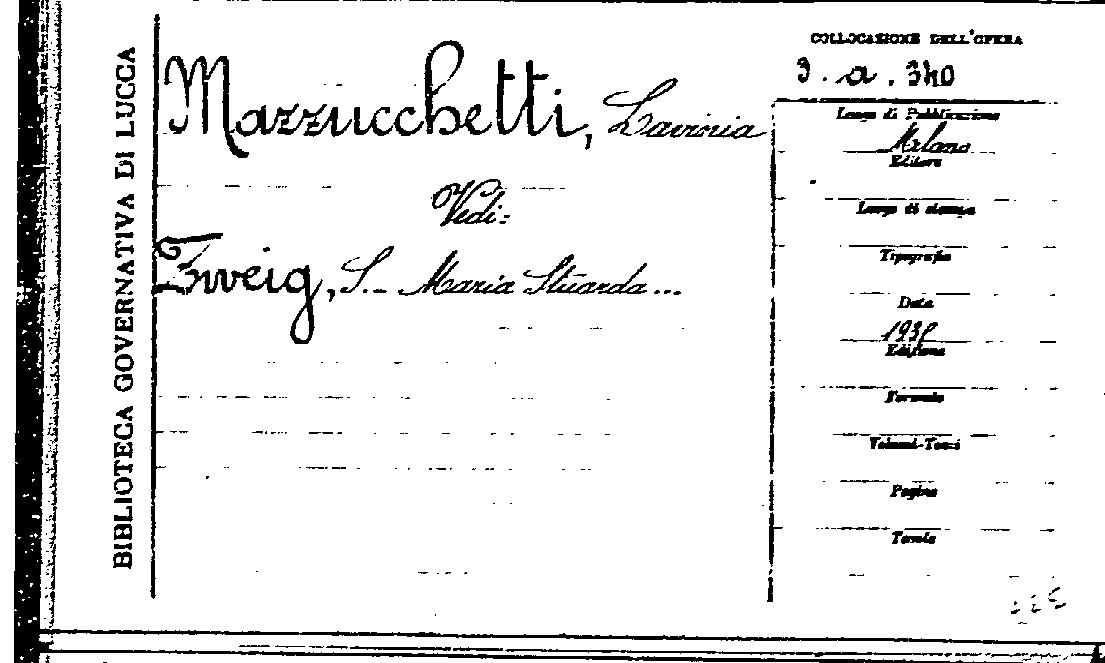 BIBLIOTECA GOVERNATIVA DI LUCCA
Mazzucchetti, Lavinia
Vedi:
Zweig, S.- Maria Stuarda...
COLLOCAZIONE DELL'OPERA
3. a. 340
Luogo di Pubblicazione
Milano
Editore
Luogo di stampa
Tipografia
Data
Edizione
Formato
Volumi-Tomi
Pagine
Tavole